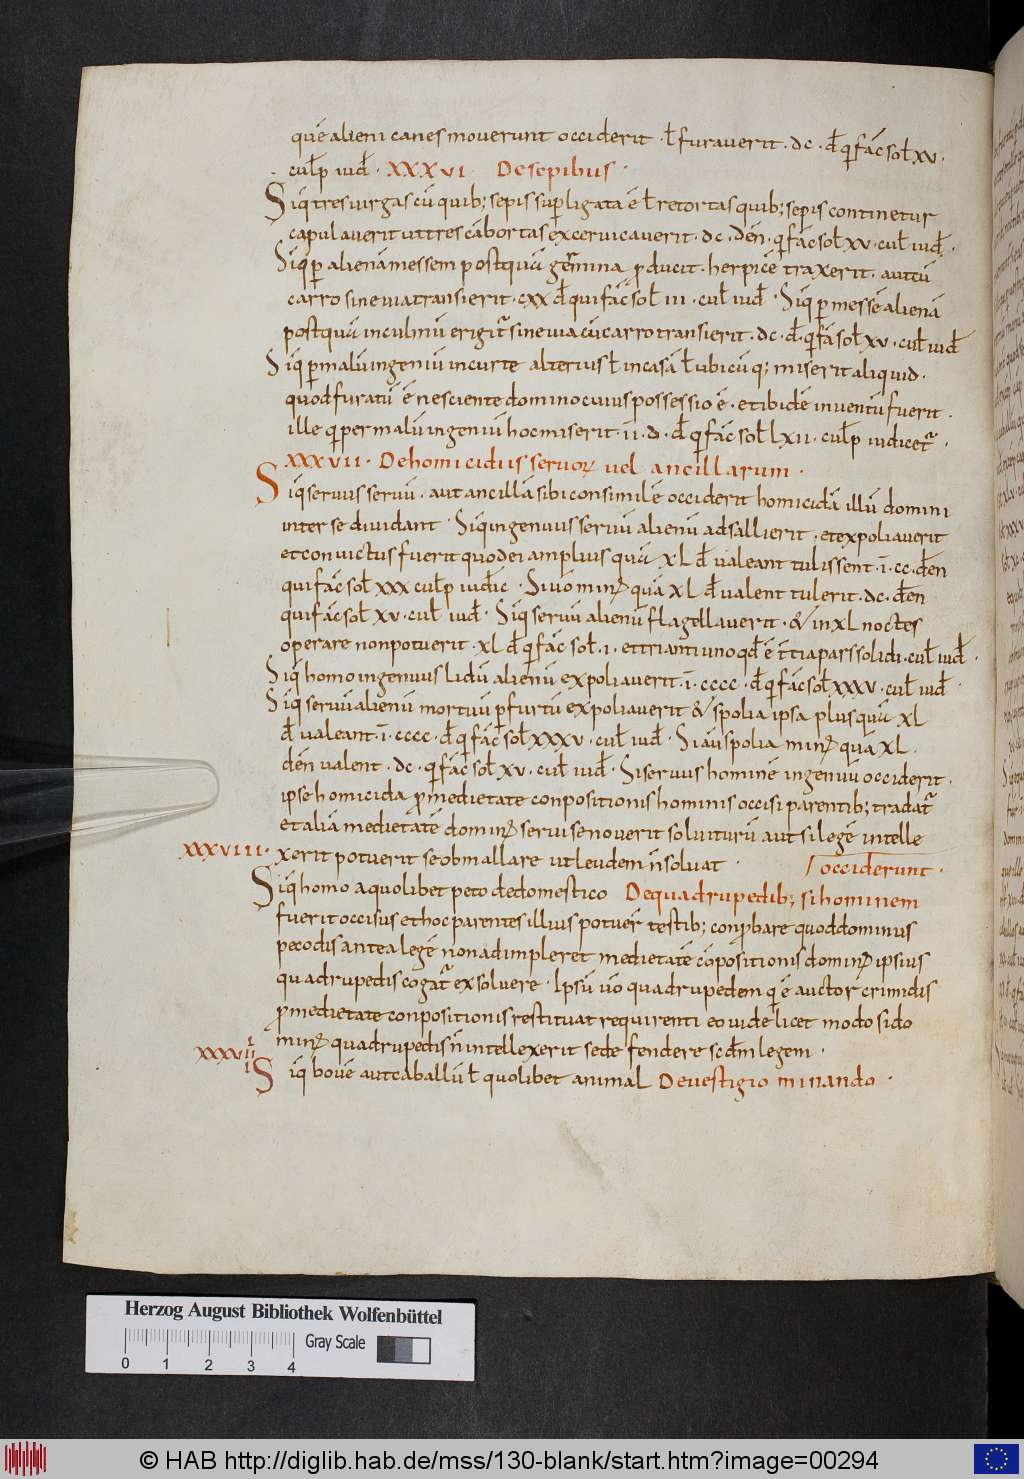 que alieni canes moverunt occiderit · ł furaverit · dc · đ q̄ fac̄ soł xv ·
cuł p̄ iuđ · XXXVI · De sepibus ·
Siq̄ tres virgas cū quib; sepis sup̄ligata ē ł retortas quib; sepis continetur
capulaverit ut tres cābortas excervicaverit · dc · đen · q̄ fac̄ soł xv · cuł iuđ ·
Siq̄ p̄ alienā messem postquā gērmina p̄ducit · herpicē traxerit · aut cū
carro sine via transierit · cxx đ qui fac̄ soł III · cuł iuđ · Siq̄ p̄ messē alienā
postquā in culmū erigit̄ sine via cū carro transierit · dc · đ · q̄ fac̄ soł xv · cuł iuđ
Siq̄ p̄ malū ingeniū in curte alterius ł in casā ł ubicūq; miserit aliquid ·
quod furatū ē nesciente domino cuius possessio ē · et ibidē inventū fuerit ·
ille q̄ per malū ingeniū hoc miserit · II · đ · đ q̄ fac̄ soł lxII · cuł p̄ iudicet̄ ·
XXXVII · De homicidiis servoꝝ vel ancillarum ·
Siq̄ servus servū · aut ancillā sibi consimilē occiderit homicidā illū domini
inter se dividant · Siq̄ ingenuus servū alienū adsallierit · et expoliaverit
et convictus fuerit quod ei amplius quā xl đ valeant tulissent · ī · cc · đen
qui fac̄ soł xxx cuł p̄ iuđic · Si v̄o minꝰ quā xl đ valent tulerit · dc · đen
qui fac̄ soł xv · cuł iuđ · Siq̄ servū alienū flagellaverit · & in xl noctes
operare non potuerit · xl đ q̄ fac̄ soł · I · et trianti uno qđ ē t̄tia pars solidi · cuł iuđ ·
Siq̄ homo ingenuus lidū alienū expoliaverit · ī · cccc · đ q̄ fac̄ soł xxxv · cuł iuđ ·
Siq̄ servū alienū mortuū p̄ furtū expoliaverit & spolia ipsa plus quā xl
đ valeant · ī · cccc · đ q̄ fac̄ soł xxxv · cuł iuđ · Si aū spolia minꝰ quā xl ·
đen valent · dc · q̄ fac̄ soł xv · cuł iuđ · Si servus hominē ingenuū occiderit ·
ipse homicida p̄ medietate conpositionis hominis occisi parentib; tradat̄
et aliā medietatē dominꝰ servi se noverit soluiturū aut si legē intelle
XXXVIII · xerit potuerit se obmallare ut leudem n̄ solvat · occiderunt ·
Siq̄ homo a quolibet peco de domestico De quadrupedib; si hominem
fuerit occisus et hoc parentes illius potuer̄ testib; conp̄bare quod dominus
pecodis antea legē non adimpleret medietatē cōpositionis dominꝰ ipsius
quadrupedis cogat̄ exsolvere · Ipsū v̄o quadrupedem q̄ ē auctor criminis
p̄ medietate conpositionis restituat requirenti eo videlicet modo si do
minꝰ quadrupedis n̄ intellexerit se defendere scđm legem ·
XXXVIIII Siq̄ bovē aut caballū ł quolibet animal De vestigio minando ·
Herzog August Bibliothek Wolfenbüttel
Gray Scale
0 1 2 3 4
© HAB http://diglib.hab.de/mss/130-blank/start.htm?image=00294